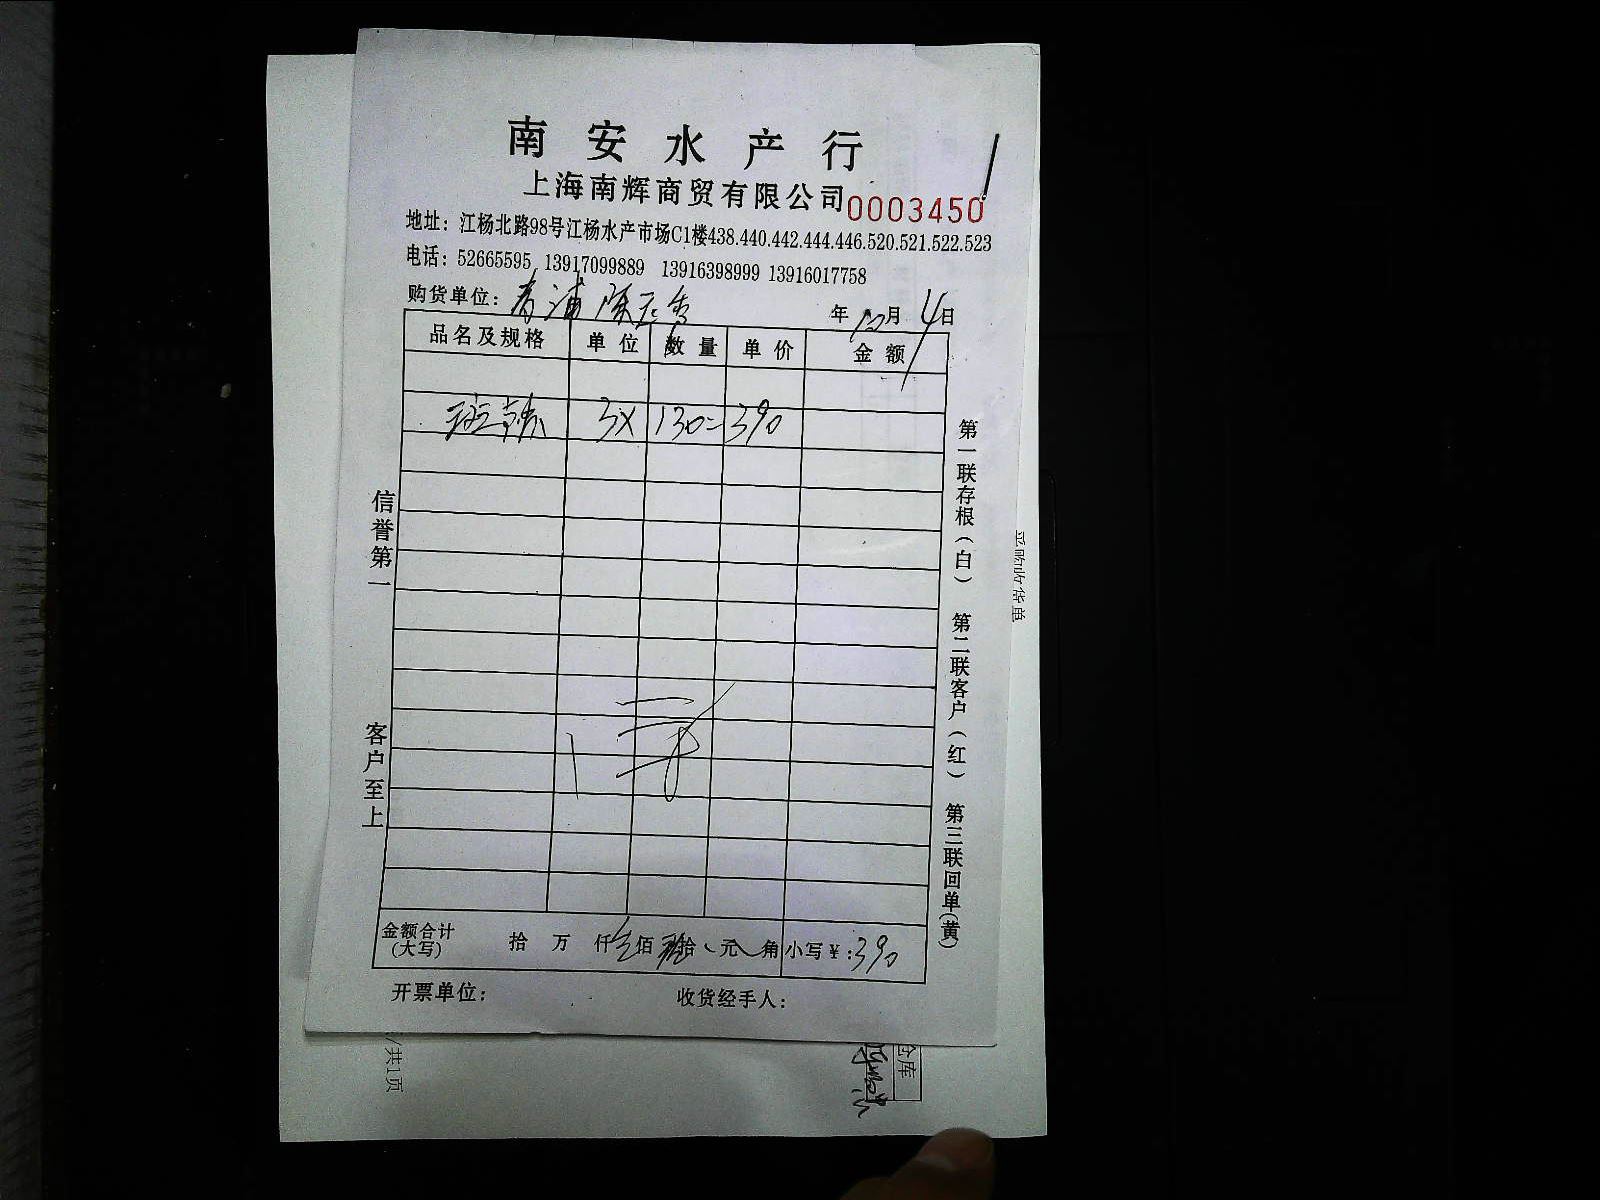 南安水产行
上海南辉商贸有限公司 0003450
地址：江杨北路98号江杨水产市场C1楼438.440.442.444.446.520.521.522.523
电话：52665595 13917099889 13916398999 13916017758
购货单位：青浦陈 年10月4日
品名及规格 单位 数量 单价 金额
3× 130=390
信誉第一
客户至上
第一联存根（白） 第二联客户（红） 第三联回单（黄）
金额合计（大写） 拾 万 仟 佰 拾 元 角 小写￥：390
开票单位： 收货经手人：
采购收货单
/共1页
仓库